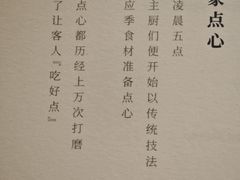 家点心
凌晨五点
主厨们便开始以传统技法
应季食材准备点心
点心都历经上万次打磨
了让客人『吃好点』